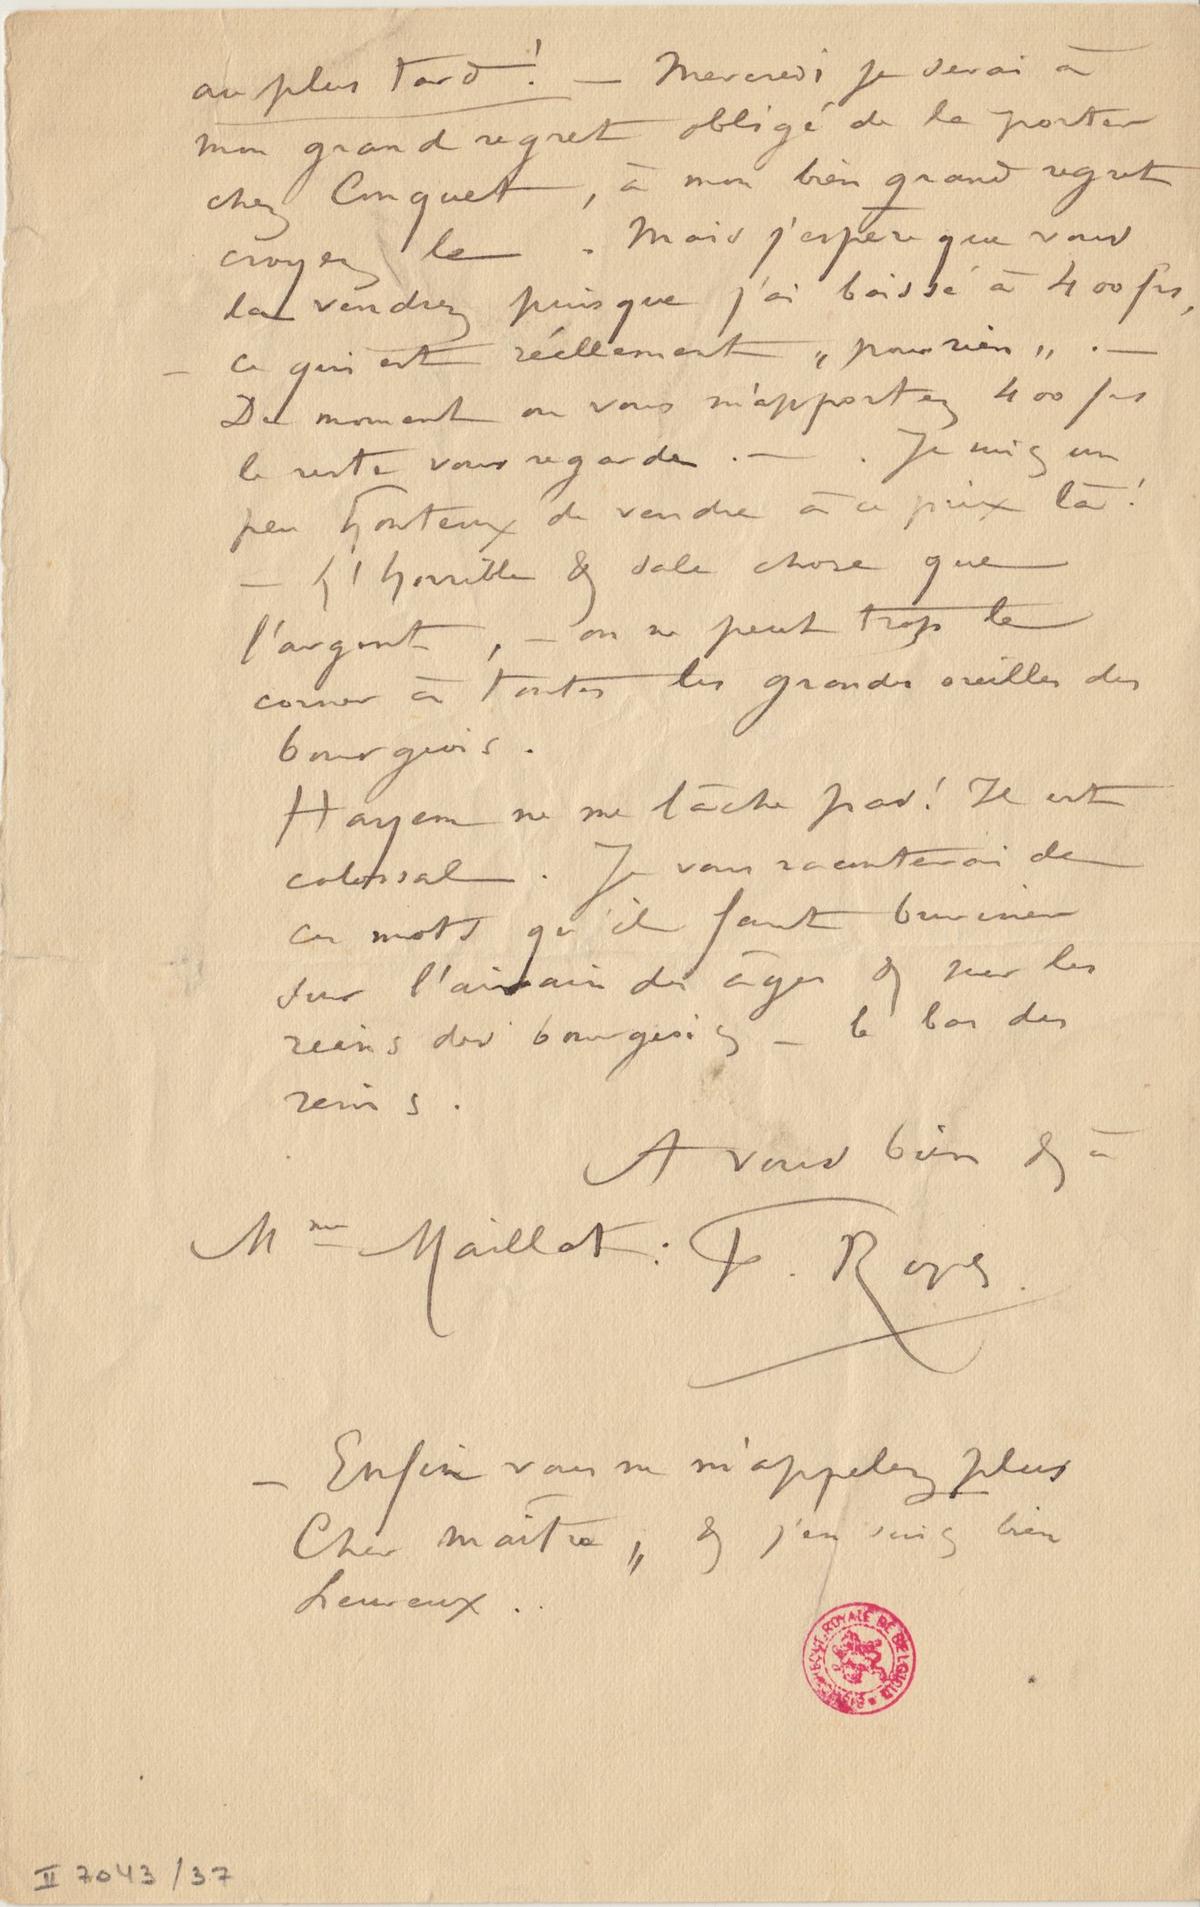 au plus tard ! — Mercredi je serai à
mon grand regret obligé de le porter
chez Conquet, à mon bien grand regret
croyez le . Mais j'espère que vous
la vendrez puisque j'ai baissé à 400 frs,
— ce qui est réellement „ pour rien „ . —
Du moment ou vous m'apportez 400 frs
le reste vous regarde . — . Je suis un
peu honteux de vendre à ce prix là !
— h ! horrible & sale chose que
l'argent , — on ne peut trop le
corner à toutes les grandes oreilles des
bourgeois .
Hayem ne me lâche pas ! Il est
colossal . Je vous raconterai de
ces mots qu'il faut buriner
sur l'airain des âges & sur les
reins des bourgeois — le bas des
reins .
A vous bien & à
Mme Maillat : F. Rops.
— Enfin vous ne m'appelez plus
Cher maître „ & j'en suis bien
heureux . .
BIBLIOTHECA REGIA · ROYALE DE BELGIQUE
II 7043 / 37